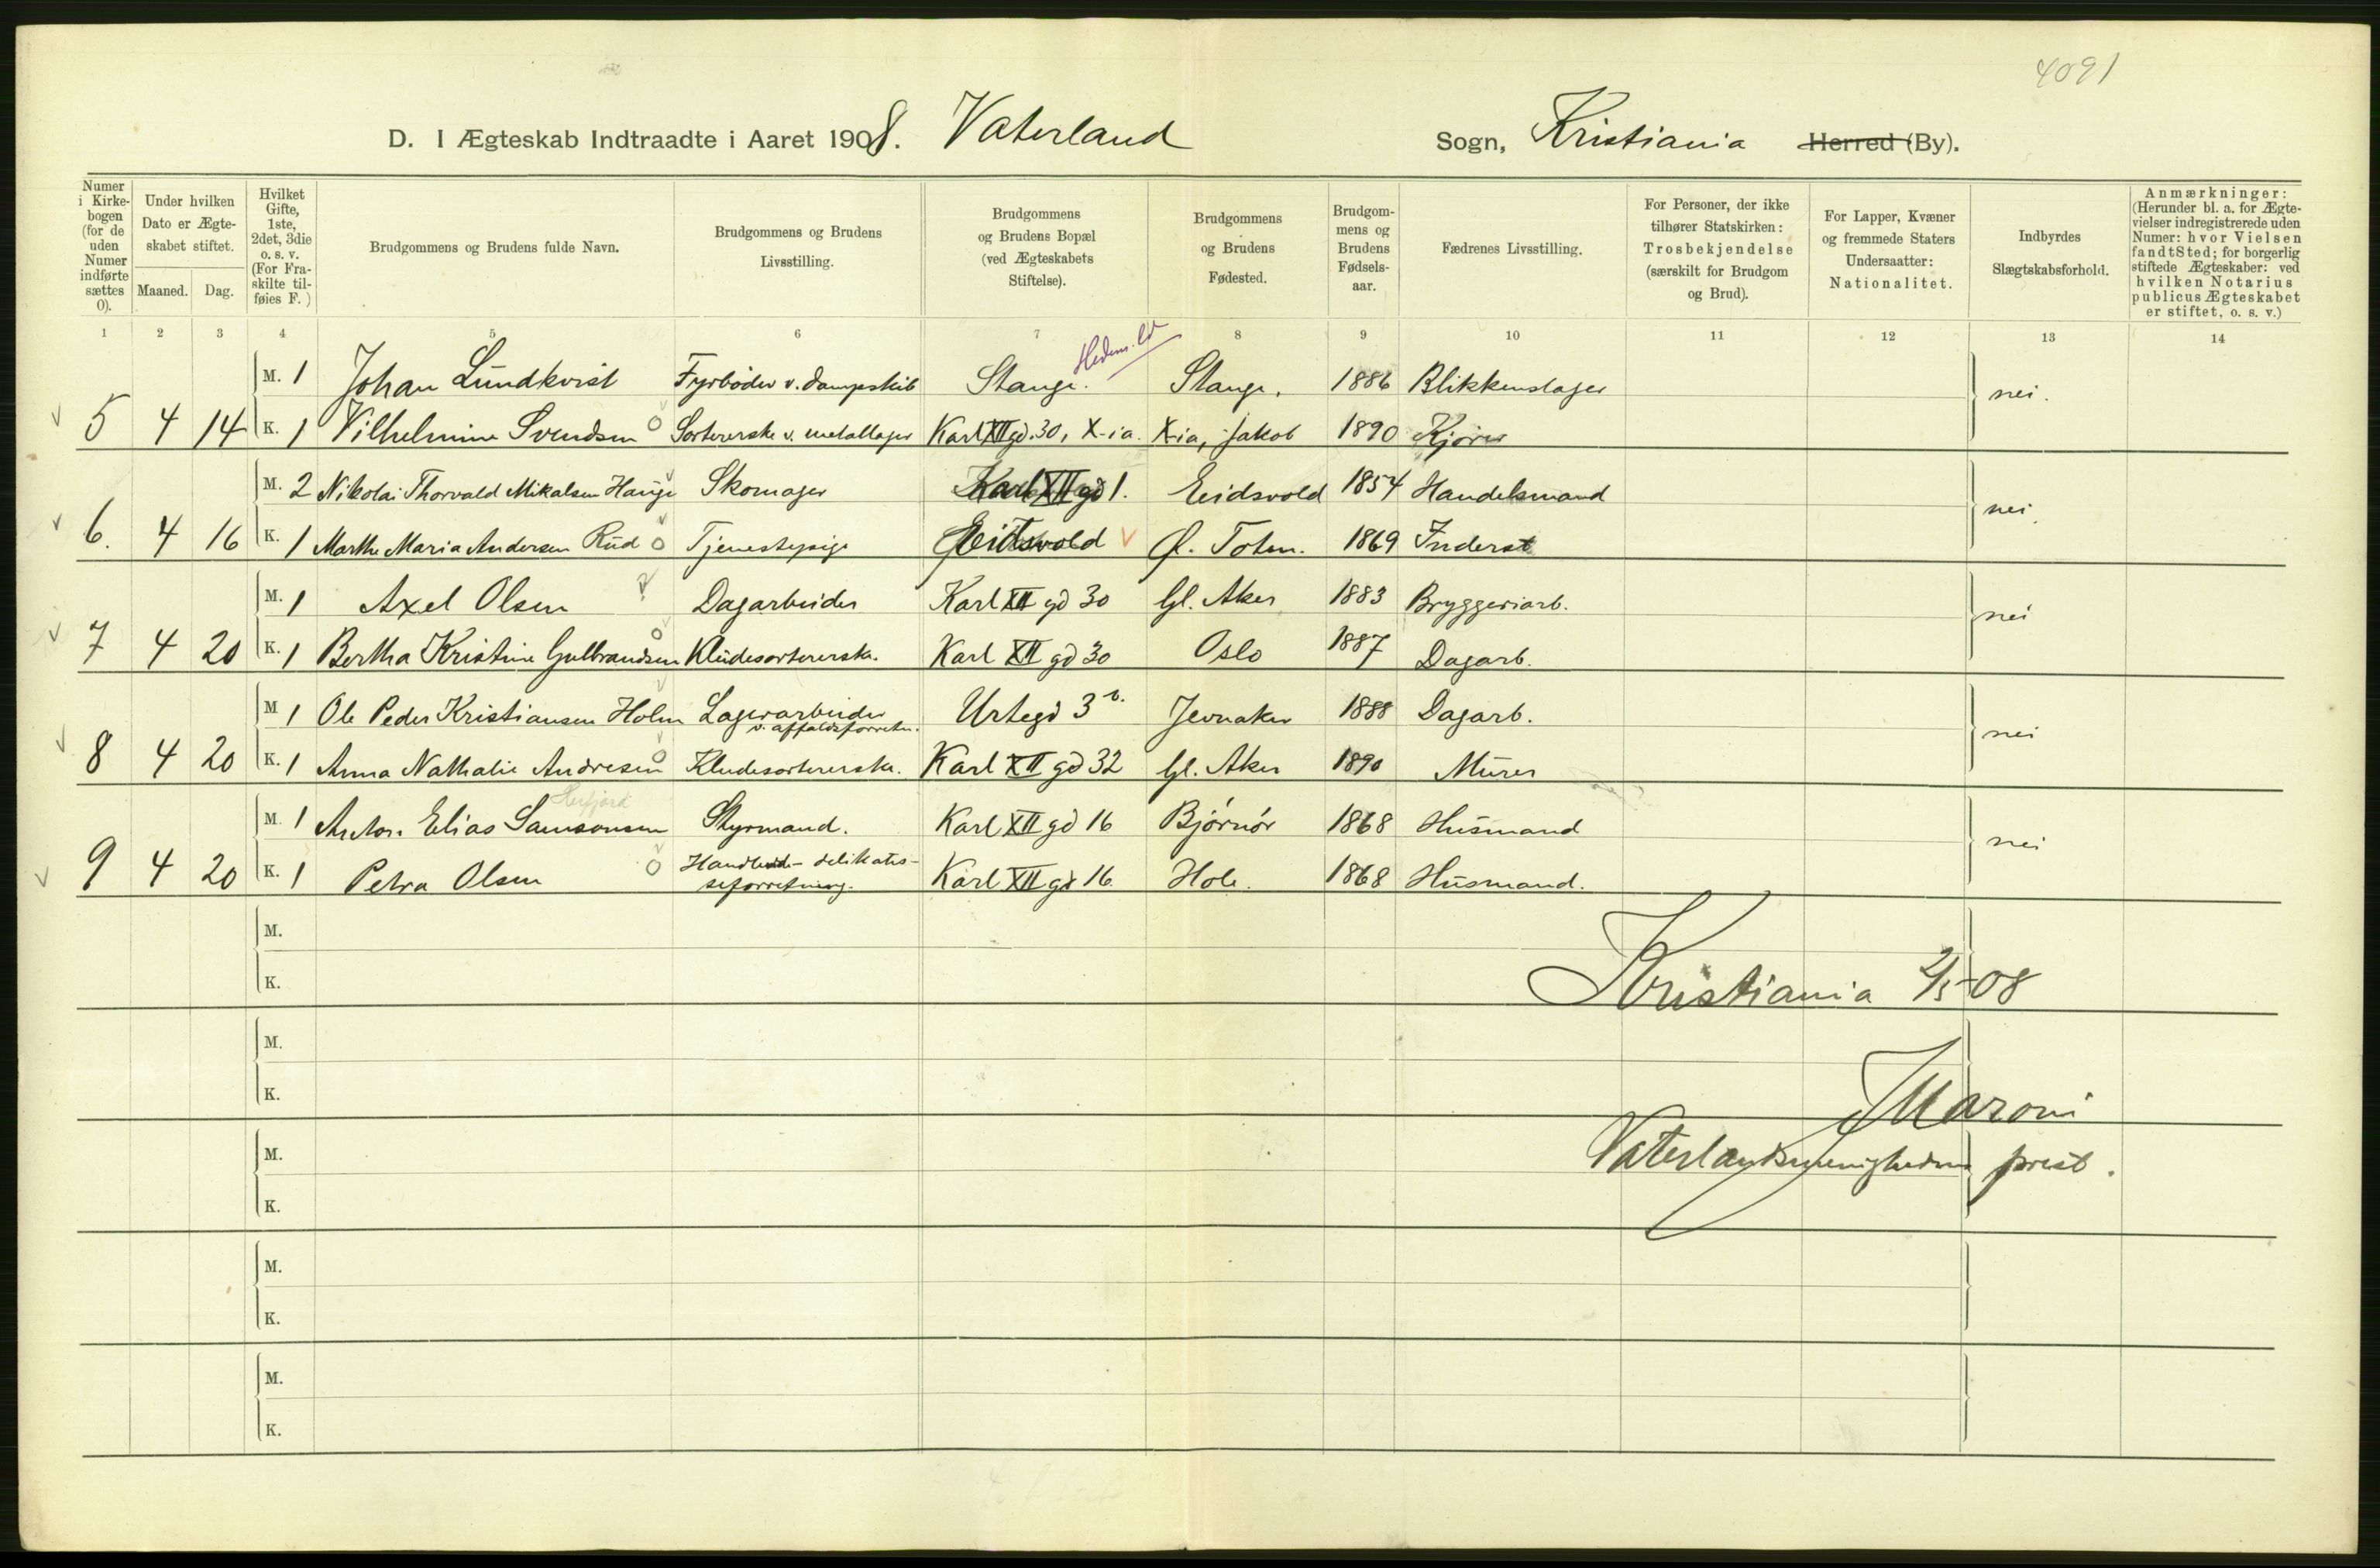 4091
D. I Ægteskab Indtraadte i Aaret 1908. Vaterland Sogn, Kristiania Herred (By).
Numer i Kirkebogen (for de uden Numer indførte sættes 0).
Under hvilken Dato er Ægteskabet stiftet.
Maaned. Dag.
Hvilket Gifte, 1ste, 2det, 3die o. s. v. (For Fraskilte tilføies F.)
Brudgommens og Brudens fulde Navn.
Brudgommens og Brudens Livsstilling.
Brudgommens og Brudens Bopæl (ved Ægteskabets Stiftelse).
Brudgommens og Brudens Fødested.
Brudgommens og Brudens Fødselsaar.
Fædrenes Livsstilling.
For Personer, der ikke tilhører Statskirken: Trosbekjendelse (særskilt for Brudgom og Brud).
For Lapper, Kvæner og fremmede Staters Undersaatter: Nationalitet.
Indbyrdes Slægtskabsforhold.
Anmærkninger: (Herunder bl. a. for Ægtevielser indregistrerede uden Numer: hvor Vielsen fandt Sted; for borgerlig stiftede Ægteskaber: ved hvilken Notarius publicus Ægteskabet er stiftet, o. s. v.)
1 2 3 4 5 6 7 8 9 10 11 12 13 14
M. 1 Johan Lundkvist Fyrbøder v. Dampskib Stange. Hedem. Stange. 1886 Blikkenslager nei.
5 4 14 K. 1 Vilhelmine Svendsen Sortererske v. metallager Karl XII gd. 30, X-ia. X-ia, Jakob 1890 Kjører
M. 2 Nikolai Thorvald Mikalsen Hauge Skomager Karl XII gd 1. Eidsvold 1854 Handelsmand nei.
6. 4 16 K. 1 Marthe Maria Andersen Rud Tjenestepige Eidsvold Ø. Toten. 1869 Inderst
M. 1 Axel Olsen Dagarbeider Karl XII gd 30 Gl. Aker 1883 Bryggeriarb. nei
7 4 20 K. 1 Bertha Kristine Gulbrandsen Kludesortererske. Karl XII gd 30 Oslo 1887 Dagarb.
M 1 Ole Peder Kristiansen Holm Lagerarbeider v. affaldsforretn. Urtegd 3 Jevnaker 1888 Dagarb. nei
8 4 20 K. 1 Anna Nathalie Andresen Kludesortererske. Karl XII gd 32 Gl. Aker 1890 Murer
M. 1 Anton Elias Samsonsen Styrmand. Karl XII gd 16 Bjørnør 1868 Husmand nei
9 4 20 K. 1 Petra Olsen delikatesseforretning. Karl XII gd 16. Hole. 1868 Husmand.
M.
K. Kristiania 2/5-08
M.
K. Maroni
M. Vaterlandsmenigheden prest.
K.
M.
K.
M.
K.